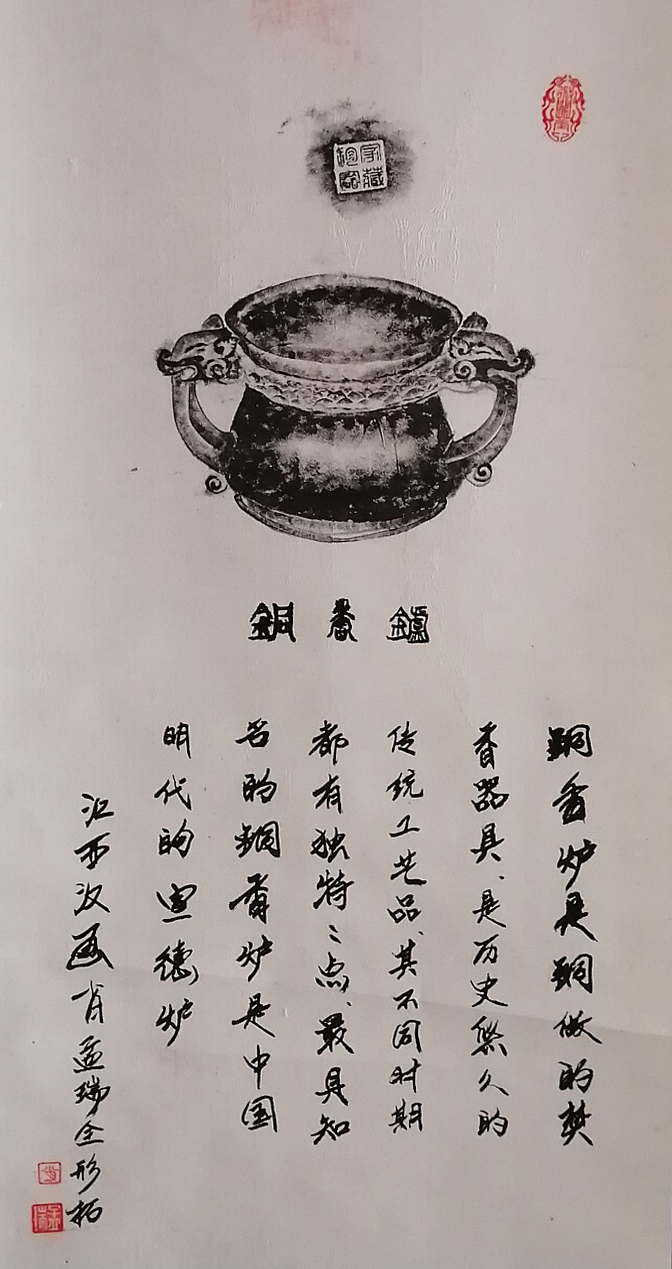 家藏
銅香鑪
銅香炉是銅做的焚
香器具、是历史悠久的
传统工艺品、其不同时期
都有独特〻点、最具知
名的銅香炉是中国
明代的宣德炉
江西汉画肖孟瑞全形拓